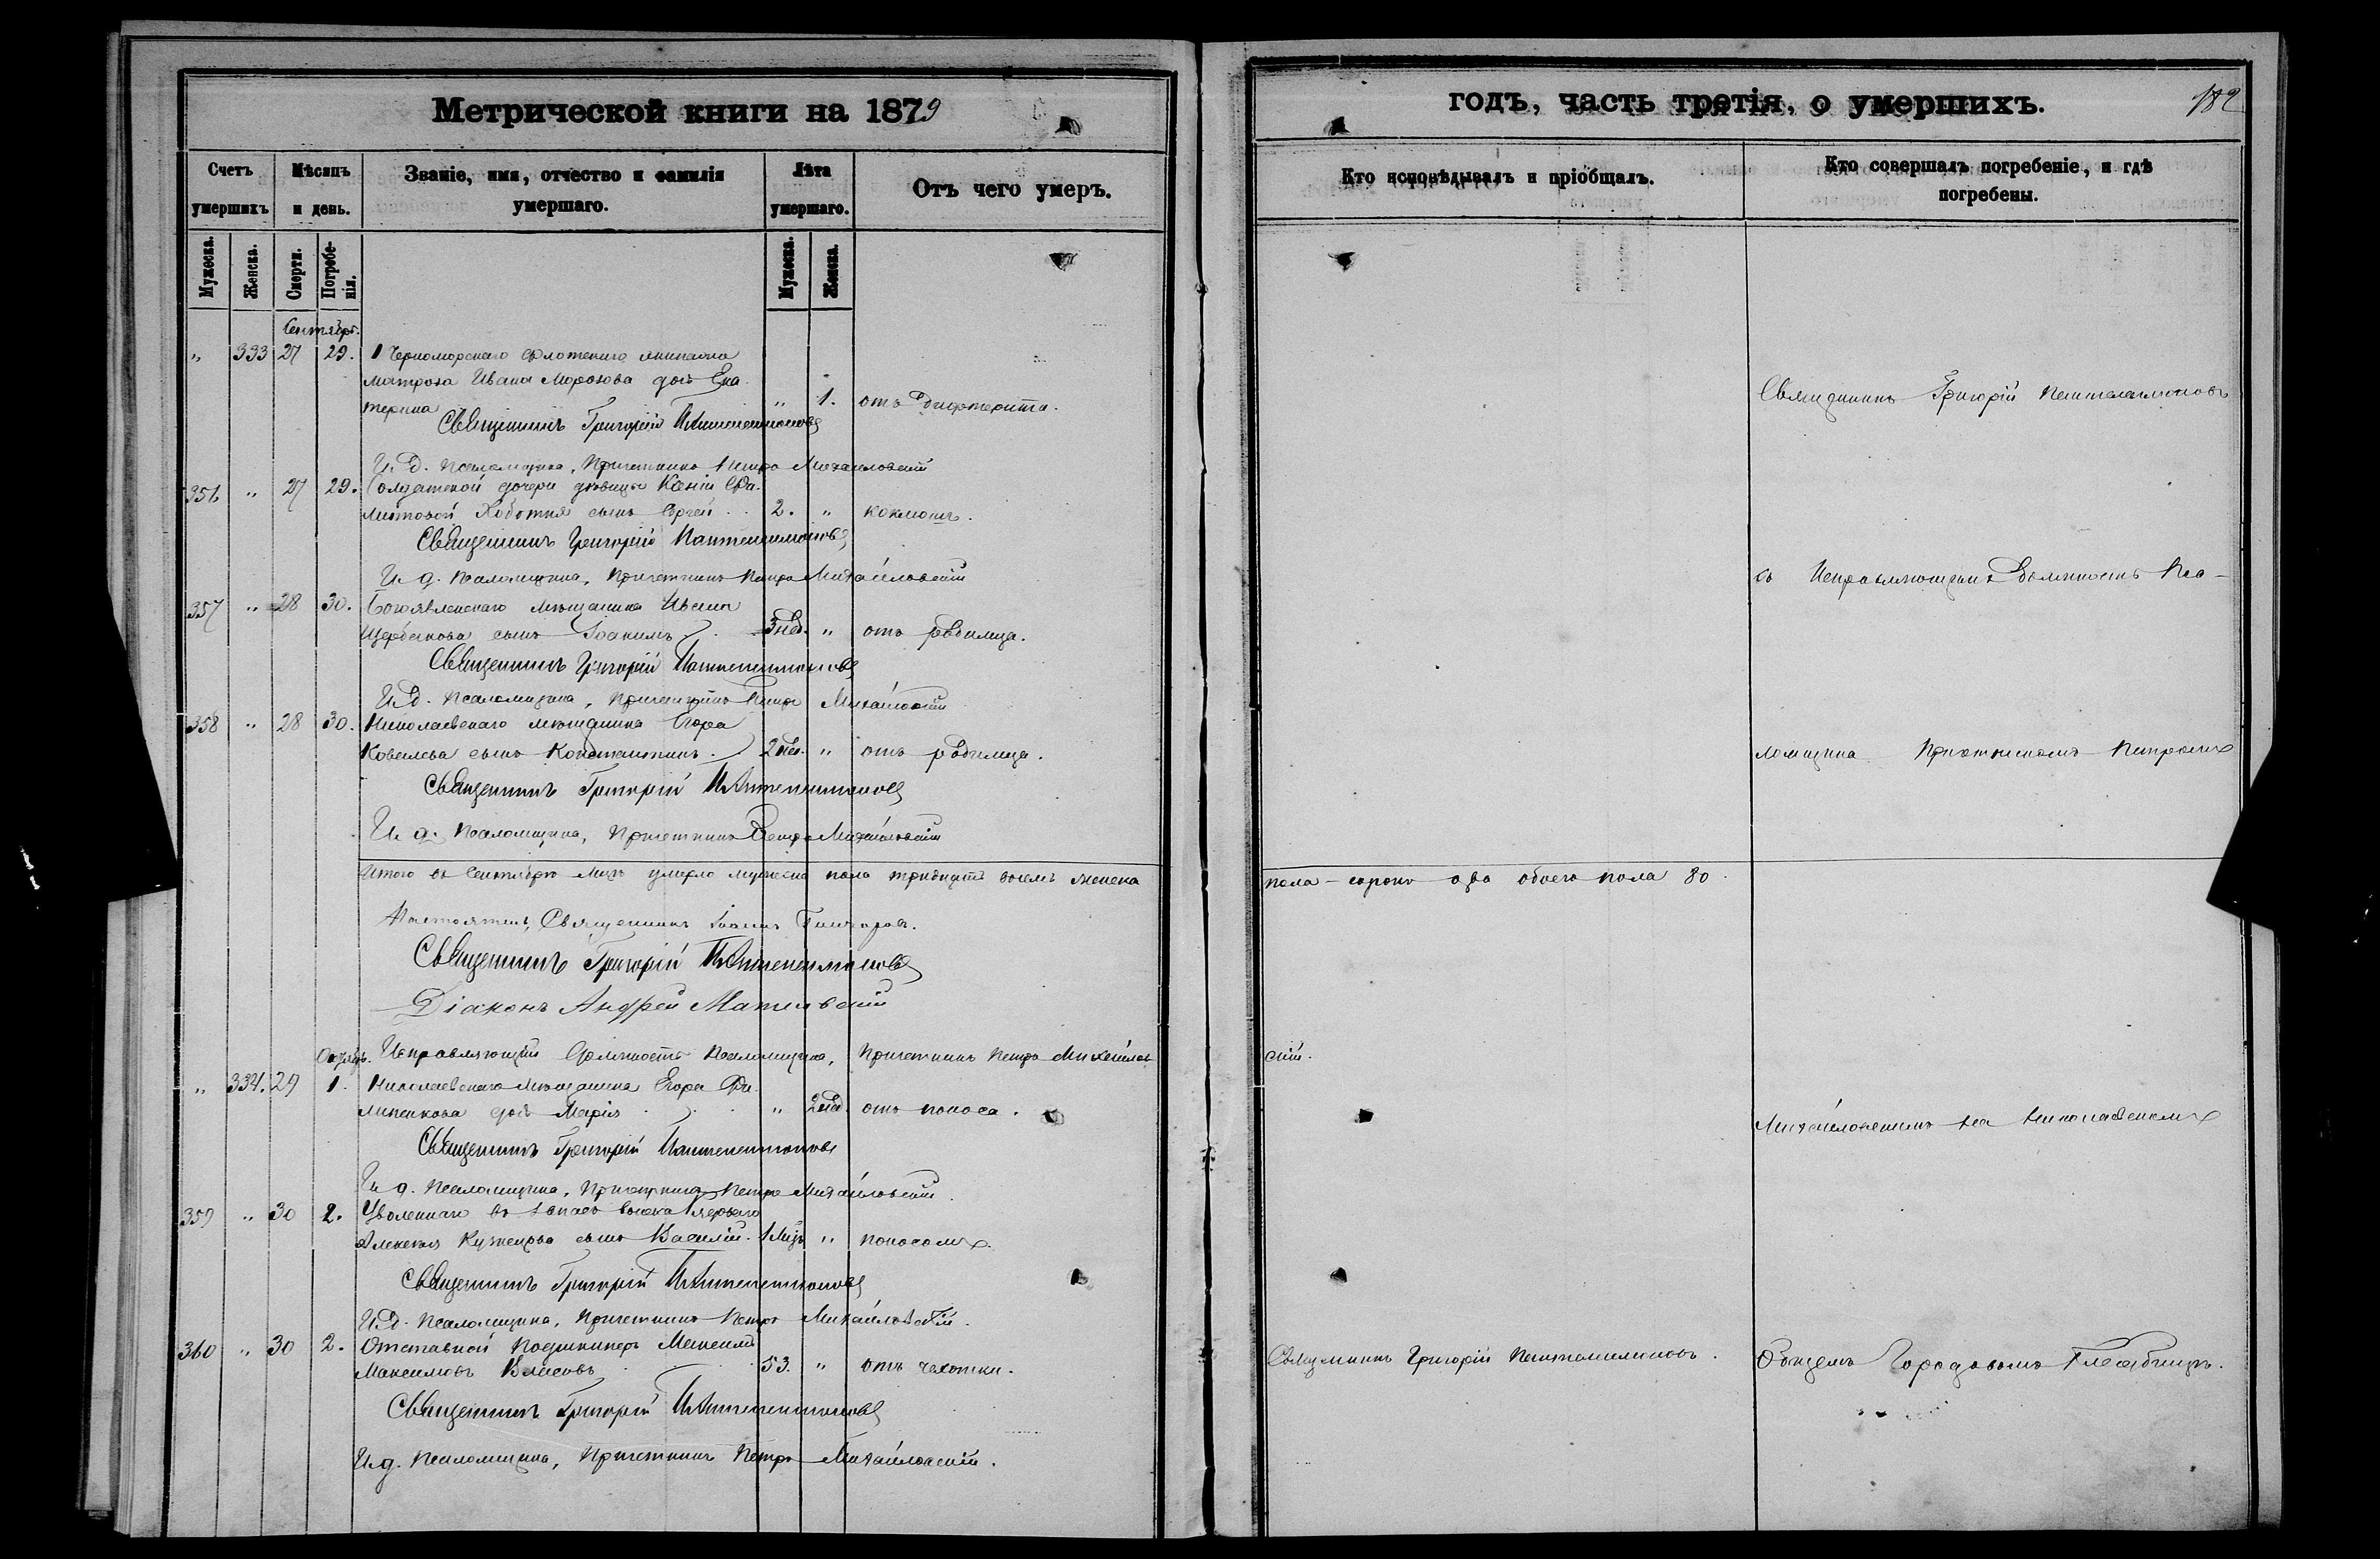 Метрической книги на 1879
годъ, часть третія, о умершихъ.
182
Счетъ умершихъ
Мѣсяцъ и день.
Званіе, имя, отчество и фамилія умершаго.
Лѣта умершаго.
Отъ чего умеръ.
Кто исповѣдывалъ и пріобщалъ.
Кто совершалъ погребеніе, и гдѣ погребены.
Мужеска.
Женска.
Смерти.
Погребенія.
Мужеска.
Женска.
Сентябрь.
" 333 27 29. 1 Черноморскаго флотскаго экипажа
матроза Ивана Морозова дочь Ека
терина " 1. отъ дифтерита.
Священникъ Григорій Пантелеимоновъ
Священникъ Григорій Пантелеимоновъ
И. д. Псаломщика, Причетникъ Петръ Михайловскій
356 " 27 29. Солдатской дочери дѣвицы Ксеніи
сынъ Сергей 2. " коклюшъ.
Священникъ Григорій Пантелеимоновъ
И. д. Псаломщика, Причетникъ Петръ Михайловскій
съ Исправляющимъ должность Пса-
357 " 28 30. Богоявленскаго мѣщанина Ивана
Щербакова сынъ Іоакимъ 3 нед. " отъ родимца.
Священникъ Григорій Пантелеимоновъ
И. д. Псаломщика, Причетникъ Петръ Михайловскій
358 " 28 30. Николаевскаго мѣщанина Егора
Ковалева сынъ Константинъ. 2 нед. " отъ родимца.
ломщика Причетникомъ Петромъ
Священникъ Григорій Пантелеимоновъ
И. д. Псаломщика, Причетникъ Петръ Михайловскій
Итого въ Сентябрѣ мцѣ умерло мужеска пола тридцать восемь женска
пола – сорокъ два обоего пола 80.
Настоятель, Священникъ Іоаннъ
Священникъ Григорій Пантелеимоновъ
Діаконъ Андрей
Исправляющій должность Псаломщика, Причетникъ Петръ Михайлов
скій.
Октябрь.
" 334. 29 1. Николаевскаго мѣщанина Егора Фи
липенкова дочь Марія " 2 нед. отъ поноса.
Михайловскимъ на Николаевскомъ
Священникъ Григорій Пантелеимоновъ
И. д. Псаломщика, Причетникъ Петръ Михайловскій
359 " 30 2. Уволеннаго въ запасъ войска рядоваго
Алексея Кузнецова сынъ Василій. 1 мцъ " поносомъ.
Священникъ Григорій Пантелеимоновъ
И. д. Псаломщика, Причетникъ Петръ Михайловскій.
360 " 30 2. Отставной Подшкиперъ Максимъ
Максимовъ Власовъ 53. " отъ чахотки.
Священникъ Григорій Пантелеимоновъ.
Общемъ Городовомъ Кладбищѣ.
Священникъ Григорій Пантелеимоновъ
И. д. Псаломщика, Причетникъ Петръ Михайловскій.